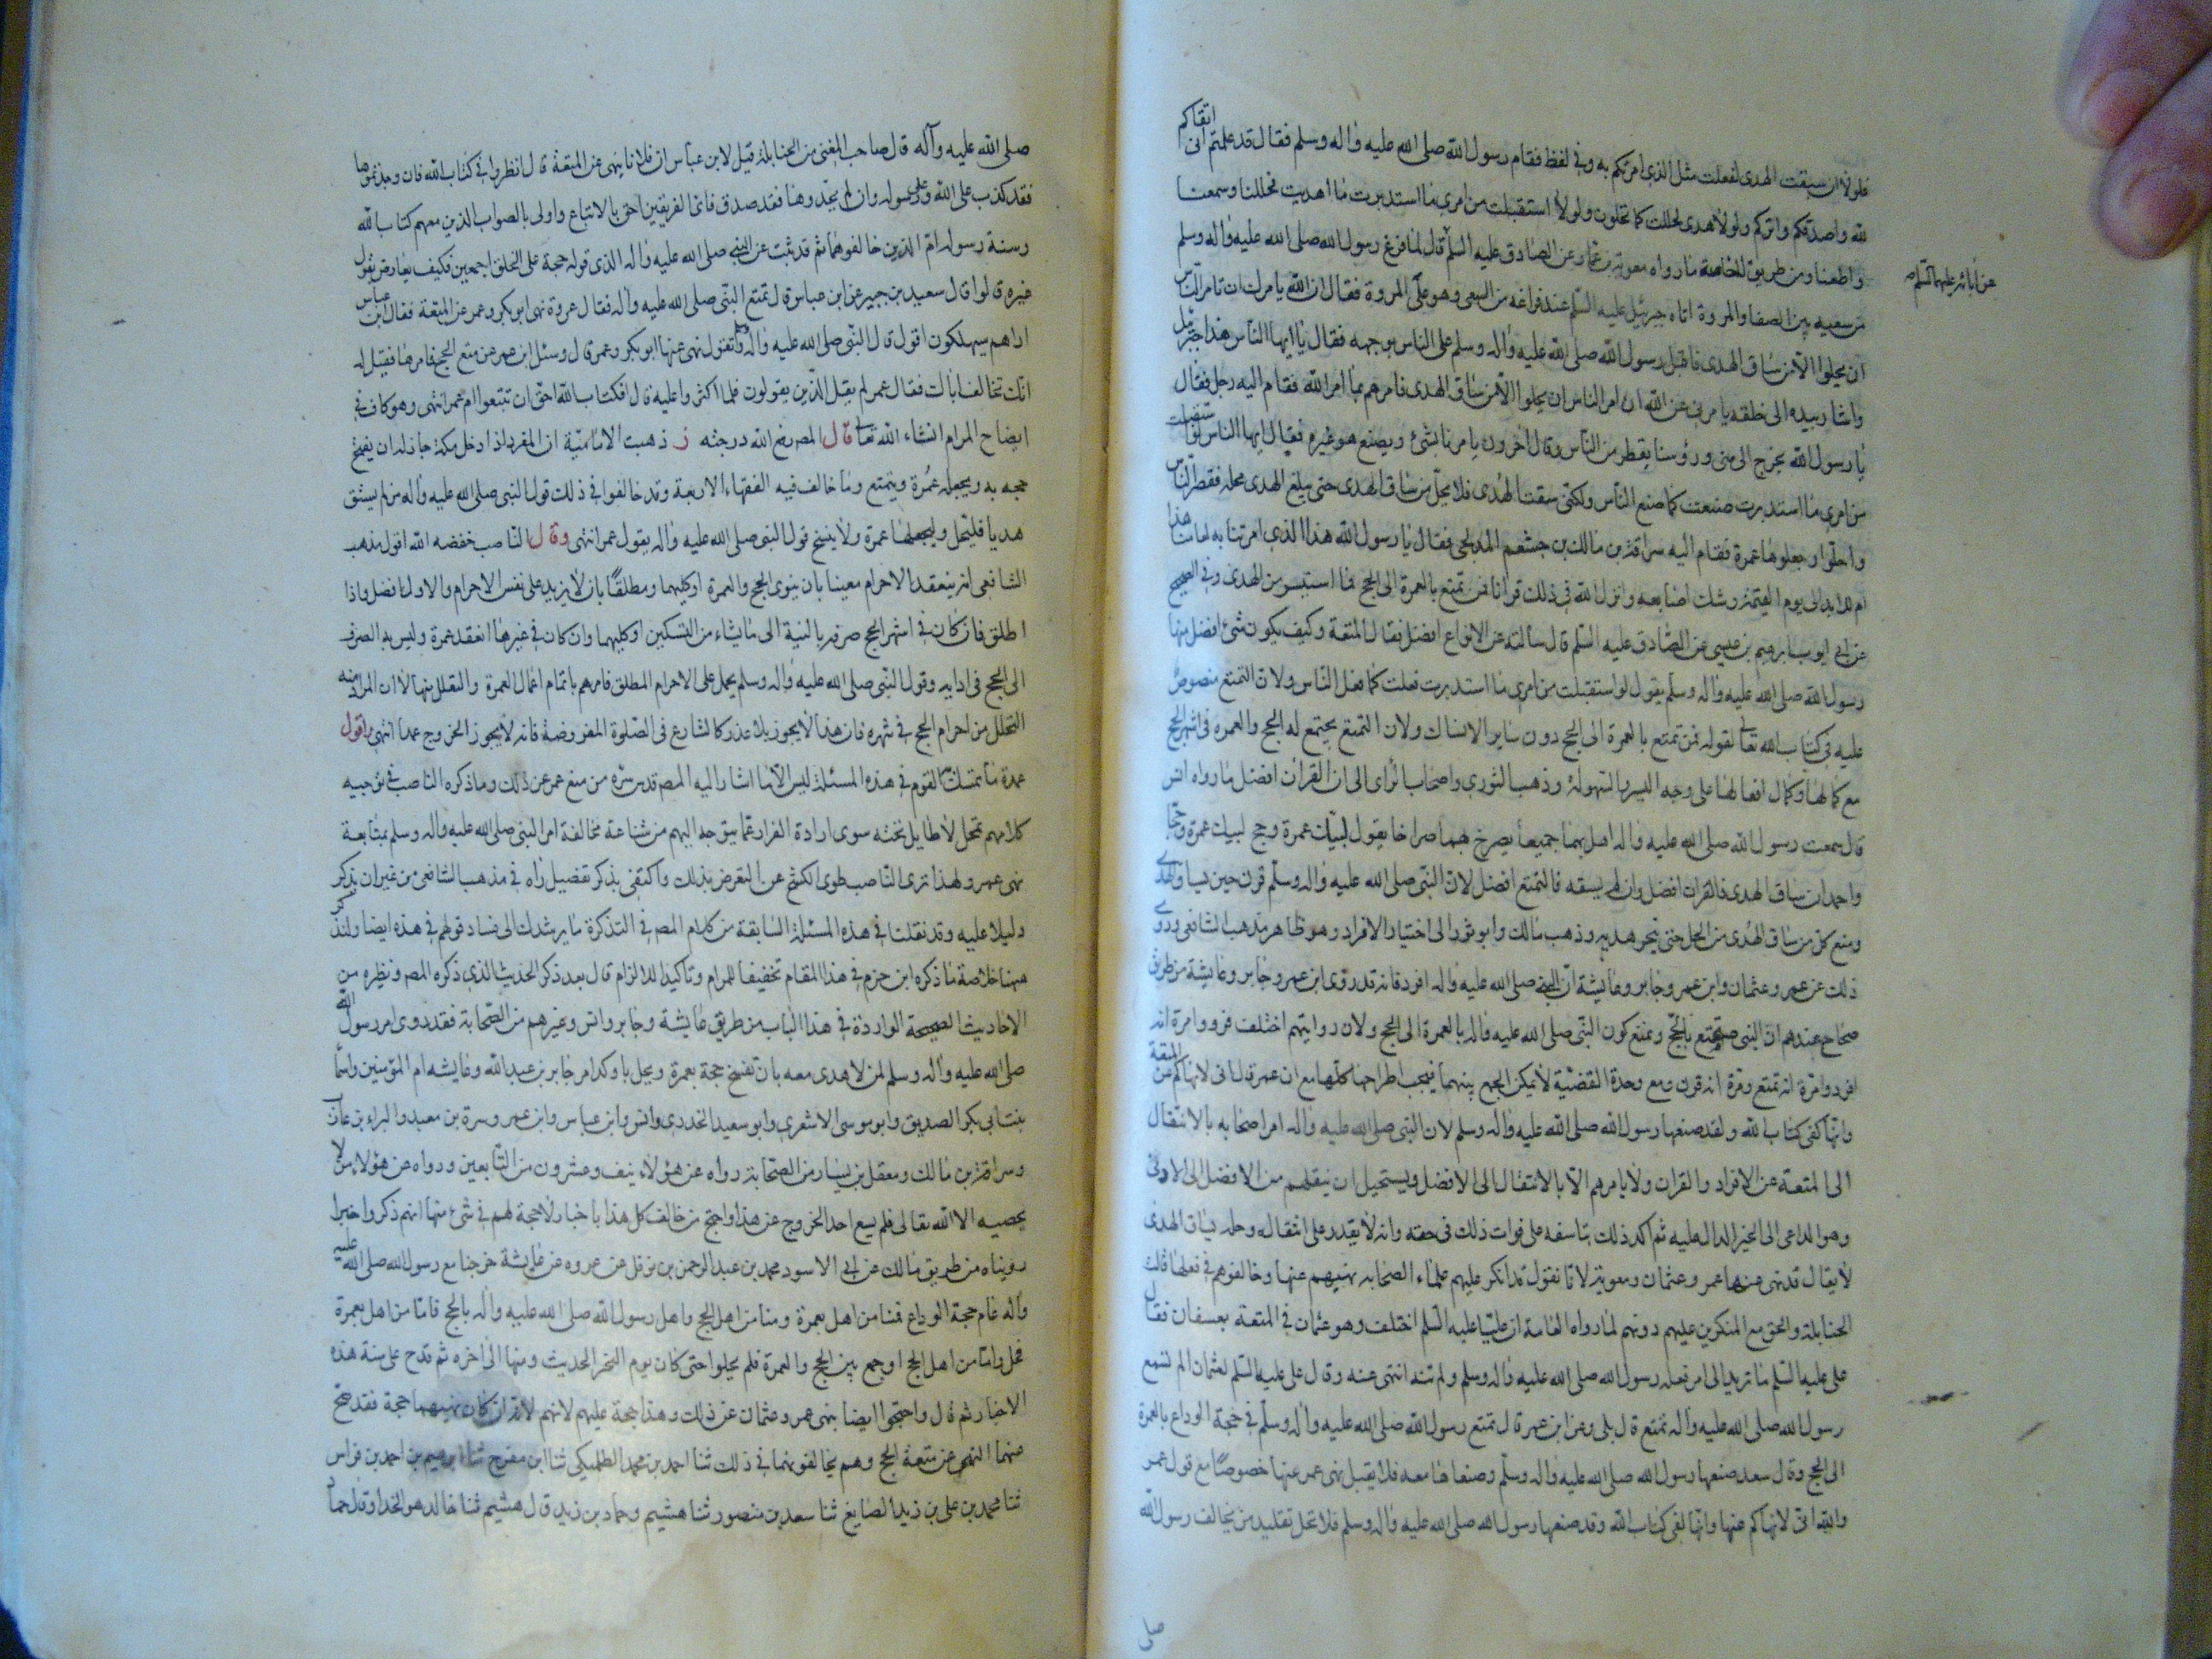 اتقاكم
فلولا ان سبقت الهدى لفعلت مثل الذى امرتكم به وفى لفظ فقام رسول الله صلى الله عليه واله وسلم فقال قد علمتم انى
لله واصدقكم وابركم ولولا هدى لحللت كما تحلون ولولا استقبلت من امرى ما استدبرت ما اهديت فحللنا وسمعنا
واطعنا ومن طريق الخاصة ما رواه معوية بن عمار عن الصادق عليه السلم قال لما فرغ رسول الله صلى الله عليه واله وسلم
عن آبائه عليهم السلم
من سعيه بين الصفا والمروة اتاه جبرئيل عليه السلم عند فراغه من السعى وهو على المروة فقال ان الله يامرك ان تامر الناس
ان يحلوا الا من ساق الهدى فاقبل رسول الله صلى الله عليه واله وسلم على الناس بوجهه فقال يا ايها الناس هذا جبرئيل
واشار بيده الى خلفه يامرنى عن الله ان امر الناس ان يحلوا الا من ساق الهدى فامرهم بما امر الله فقام اليه رجل فقال
يا رسول الله نخرج الى منى ورؤسنا يقطر من النساء وقال اخرون يامرنا بشئ ويصنع هو غيره فقال ايها الناس لو استقبلت
من امرى ما استدبرت صنعت كما صنع الناس ولكنى سقت الهدى فلا يحل من ساق الهدى حتى يبلغ الهدى محله فقصر الناس
واحلوا وجعلوها عمرة فقام اليه سراقة بن مالك بن جشعم المدلجى فقال يا رسول الله هذا الذى امرتنا به لعامنا هذا
ام للابد الى يوم القيمة وشبك اصابعه وانزل الله فى ذلك قرانا فمن تمتع بالعمرة الى الحج فما استيسر من الهدى وفى الصحيح
عن ابى ايوب ابرهيم بن عيسى عن الصادق عليه السلم قال سالته عن الانواع افضل فقال المتعة وكيف يكون شئ افضل منها
رسول الله صلى الله عليه واله وسلم يقول لو استقبلت من امرى ما استدبرت فعلت كما فعل الناس ولان التمتع منصوص
عليه فى كتاب الله تعالى لقوله فمن تمتع بالعمرة الى الحج دون ساير الانساك ولان التمتع يجتمع له الحج والعمره فى اشهر الحج
مع كمالها وكمال افعالها على وجه اليسر والسهولة وذهب الثورى واصحاب الراى الى ان القران افضل لما رواه انس
قال سمعت رسول الله صلى الله عليه واله اهل بهما جميعا يصرخ بهما صراخا يقول لبيك عمرة وحج لبيك عمرة وحجا
واحمد ان ساق الهدى فالقران افضل وان لم يسقه فالتمتع افضل لان النبى صلى الله عليه واله وسلم قرن حين ساق الهدى
ومنع كل من ساق الهدى من الحل حتى ينحر هديه وذهب مالك وابو ثور الى اختيار الافراد وهو ظاهر مذهب الشافعى وروى
ذلك عن عمر وعثمان وابن عمر وجابر وعايشة ان النبى صلى الله عليه واله افرد فانه قد روى ابن عمر وجابر وعايشة من طرق
صحاح عندهم ان النبى ص تمتع بالحج ونمنع كون النبى صلى الله عليه واله بالعمرة الى الحج ولان روايتهم اختلف فرووا مرة انه
افرد ومرة انه تمتع ومرة انه قرن ومع وحدة القضية لا يمكن الجمع بينهما فيجب اطراحها كلها مع ان عمر قال انى لانهاكم عن المتعة
وانها لفى كتاب الله ولقد صنعها رسول الله صلى الله عليه واله وسلم لان النبى صلى الله عليه واله امر اصحابه بالانتقال
الى المتعة عن الافراد والقران ولا يامرهم الا بالانتقال الى الافضل ويستحيل ان ينقلهم من الافضل الى الادنى
وهو الداعى الى الخير الدال عليه ثم اكد ذلك بتاسفه على فوات ذلك فى حقه وانه لا يقدر على انتقاله وحله بسياق الهدى
لا يقال قد نهى عنها عمر وعثمان ومعوية لانا نقول قد انكر عليهم علماء الصحابه نهيهم عنها وخالفوهم فى فعلها قالت
الحنابلة والحق مع المنكرين عليهم دونهم لما رواه العامة ان عليا عليه السلم اختلف وهو عثمان فى المتعة بعسفان فقال
على عليه السلم ما تريد الى امر فعله رسول الله صلى الله عليه واله وسلم ولم تنه انتهى عنه وقال على عليه السلم لعثمان الم تسمع
رسول الله صلى الله عليه واله تمتع قال بلى وعن ابن عمر قال تمتع رسول الله صلى الله عليه واله وسلم فى حجة الوداع بالعمرة
الى الحج وقال سعد صنعها رسول الله صلى الله عليه واله وسلم وصنعناها معه فلا يقبل نهى عمر عنها خصوصا مع قول عمر
والله انى لانهاكم عنها وانها لفى كتاب الله وقد صنعها رسول الله صلى الله عليه واله وسلم فلا تحل تقليد من يخالف رسول الله
صلى
صلى الله عليه وآله قال صاحب المغنى من الحنابلة قيل لابن عباس ان فلانا ينهى عن المتعة قال انظروا فى كتاب الله فان وجدتموها
فقد كذب على الله وعلى رسوله وان لم تجدوها فقد صدق فاى الفريقين احق بالاتباع واولى بالصواب الذين معهم كتاب الله
وسنة رسوله ام الذين خالفوهما ثم قد ثبت عن النبى صلى الله عليه واله الذى قوله حجة على الخلق اجمعين فكيف يعارض بقول
غيره قالوا قال سعيد بن جبير عن ابن عباس قال تمتع النبى صلى الله عليه واله فقال عروة نهى ابو بكر وعمر عن المتعة فقال ابن عباس
اراهم سيهلكون اقول قال النبى صلى الله عليه واله وتقول نهى عنها ابو بكر وعمر قال وسئل ابن عمر عن متع الحج فامر بها فقيل له
انك تخالف اباك فقال عمر لم يقل الذين يقولون فلما اكثروا عليه قال افكتاب الله احق ان تتبعوا ام عمر انتهى وهو كاف فى
ايضاح المرام انشاء الله تعالى قال المص رفع الله درجته ز ذهبت الامامية ان المفرد اذا دخل مكة جاز له ان يفسخ
حجه به ويجعله عمرة ويتمتع وما خالف فيه الفقهاء الاربعة وقد خالفوا فى ذلك قول النبى صلى الله عليه واله من لم يسق
هديا فليحل وليجعلها عمرة ولا ينسخ قول النبى صلى الله عليه واله بقول عمر انتهى وقال الناصب خفضه الله اقول مذهب
الشافعى انه ينعقد الاحرام معينا بان ينوى الحج والعمرة او كليهما ومطلقا بان لا يزيد على نفس الاحرام والاول افضل واذا
اطلق فان كان فى اشهر الحج صرفه بالنية الى ما يشاء من النسكين او كليهما وان كان فى غيرها انعقد عمرة وليس له الصرف
الى الحج فى ادابه وقول النبى صلى الله عليه واله وسلم يحمل على الاحرام المطلق فامرهم باتمام اعمال العمرة والتحلل منها لا ان المراد منه
التحلل من احرام الحج فى شهره فان هذا لا يجوز بلا عذر كالشارع فى الصلوة المفروضة فانه لا يجوز الخروج عمدا انتهى واقول
عمدة ما تمسك القوم فى هذه المسئلة ليس الا ما اشار اليه المص قدس سره من منع عمر عن ذلك وما ذكره الناصب فى توجيه
كلامهم تمحل لا طايل تحته سوى ارادة الفرار عما يتوجه اليهم من شناعة مخالفة امر النبى صلى الله عليه واله وسلم بمتابعة
نهى عمر ولهذا ترى الناصب طوى الكشح عن التعرض بذلك واكتفى بذكر تفصيل راه فى مذهب الشافعى من غير ان يذكر
دليلا عليه وقد نقلنا فى هذه المسئلة السابقة من كلام المص فى التذكرة ما يرشدك الى فساد قولهم فى هذه ايضا ولنذكر
ههنا خلاصة ما ذكره ابن حزم فى هذا المقام تخفيفا للمرام وتاكيدا للالزام قال بعد ذكر الحديث الذى ذكره المص ونظيره من
الاحاديث الصحيحة الواردة فى هذا الباب من طريق عايشة وجابر وانس وغيرهم من الصحابة فقد روى امر رسول الله
صلى الله عليه واله وسلم لمن لا هدى معه بان تفسخ حجة بعمرة ويحل باوكد امر جابر بن عبد الله وعايشه ام المؤمنين واسما
بنت ابى بكر الصديق وابو موسى الاشعرى وابو سعيد الخدرى وانس وابن عباس وابن عمر وسبرة بن معبد والبراء بن عازب
وسراقة بن مالك ومعقل بن يسار من الصحابة رواه عن هؤلاء نيف وعشرون من التابعين ورواه عن هؤلاء من لا
يحصيه الا الله تعالى فلم يسع احد الخروج عن هذا واحتج من خالف كل هذا باخبار لا حجة لهم فى شئ منها انهم ذكروا خبرا
رويناه من طريق مالك عن ابى الاسود محمد بن عبد الرحمن بن نوفل عن عروه عن عايشة خرجنا مع رسول الله صلى الله عليه
واله عام حجة الوداع فمنا من اهل بعمرة ومنا من اهل الحج واهل رسول الله صلى الله عليه واله بالحج فاما من اهل بعمرة
فحل واما من اهل الحج او جمع بين الحج والعمرة فلم يحلوا حتى كان يوم النحر الحديث ومنها الى اخره ثم قدح على سنة هذه
الاخبار ثم قال واحتجوا ايضا بنهى عمر وعثمان عن ذلك وهذا حجة عليهم لانهم لا نه ان كان نهيهما حجة فقد صح
عنهما النهى عن متعة الحج وهم يخالفونهما فى ذلك ثنا احمد بن محمد الطلمنكى ثنا ابن مفرج ثنا ابرهيم بن احمد بن فراس
ثنا محمد بن على بن زيد الصايغ ثنا سعيد بن منصور ثنا هشيم وحماد بن زيد قال هشيم ثنا خالد هو الحذا وقال حماد